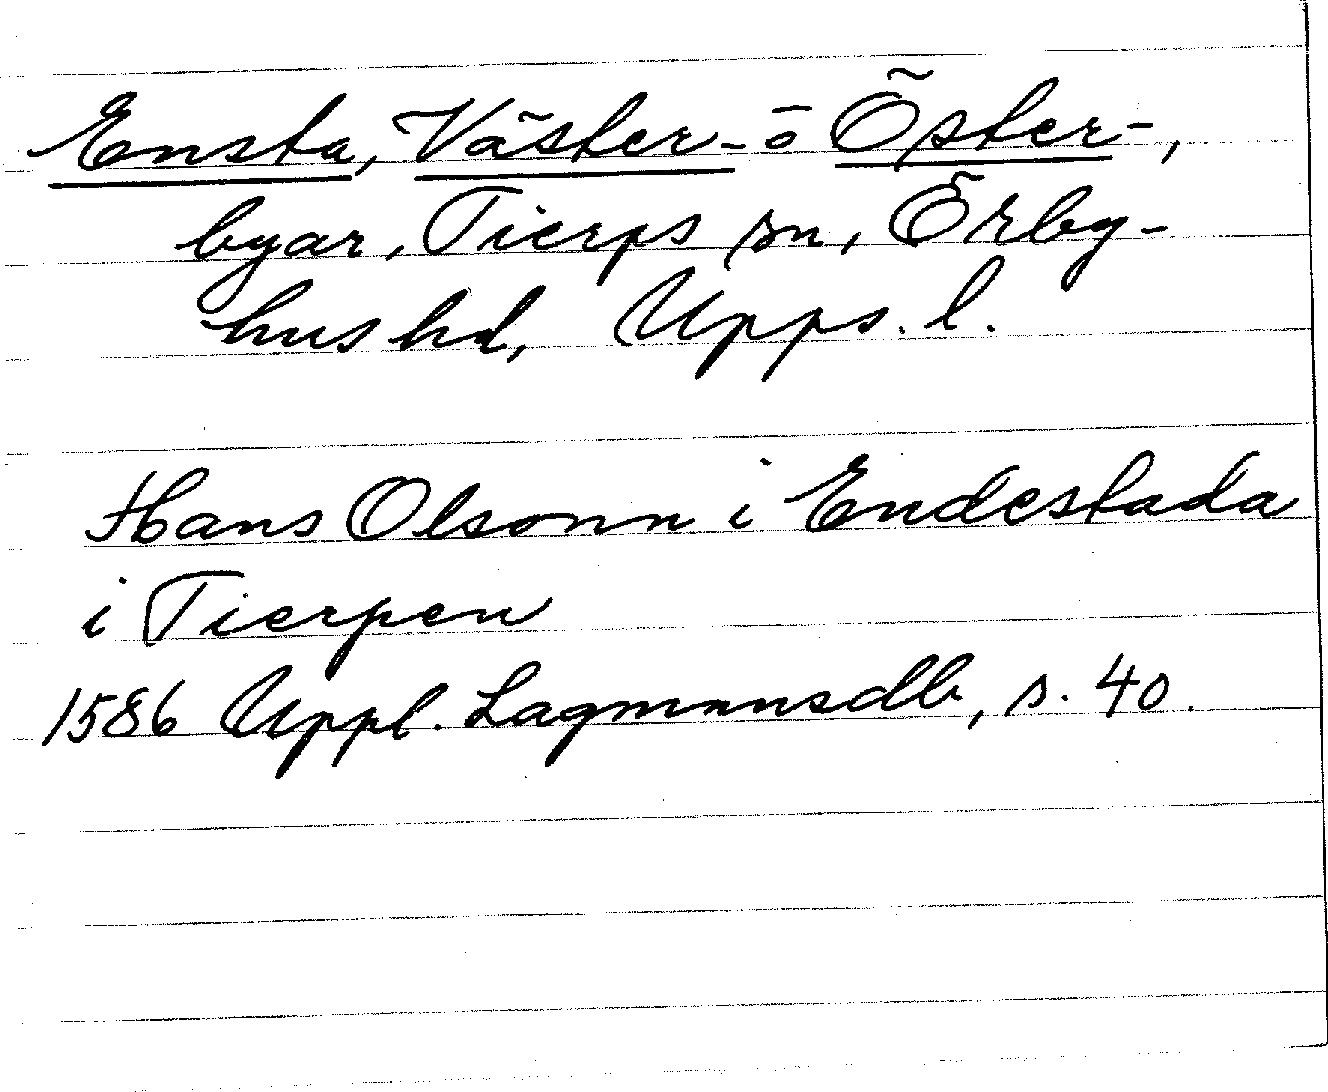 Ensta, Väster- o Öster-,
byar, Tierps sn, Örby-
hus hd, Upps. l.
Hans Olsonn i Endestada
i Tierpen
1586 Uppl. Lagmansdb, s. 40.